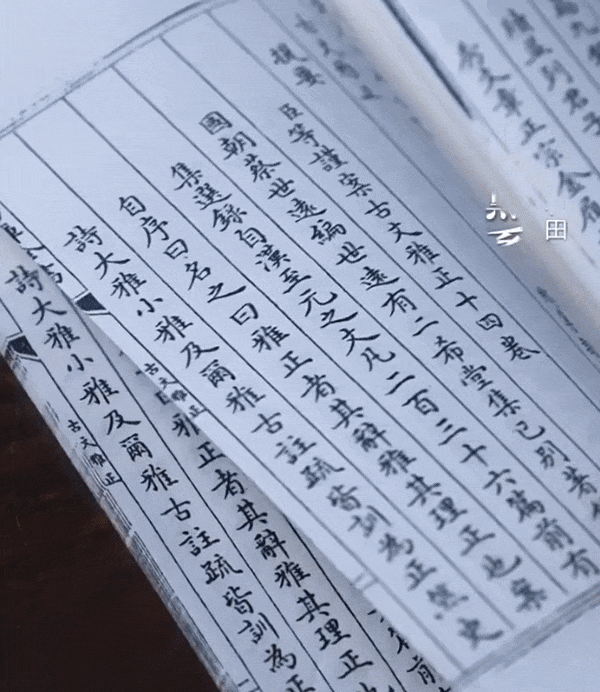 秀文章正宗金
列君子
田
提要
臣等謹案古文雅正十四卷
國朝蔡世遠編世遠有二希堂集已別著
集選錄自漢至元之文凡二百三十六篇前有
自序曰名之曰雅正者其辭雅其理正也案
詩大雅小雅及爾雅古註疏皆訓為正然史
古文雅正
前有
雅正者其辭雅其理正也
詩大雅小雅及爾雅古註疏皆訓為正
古文雅正